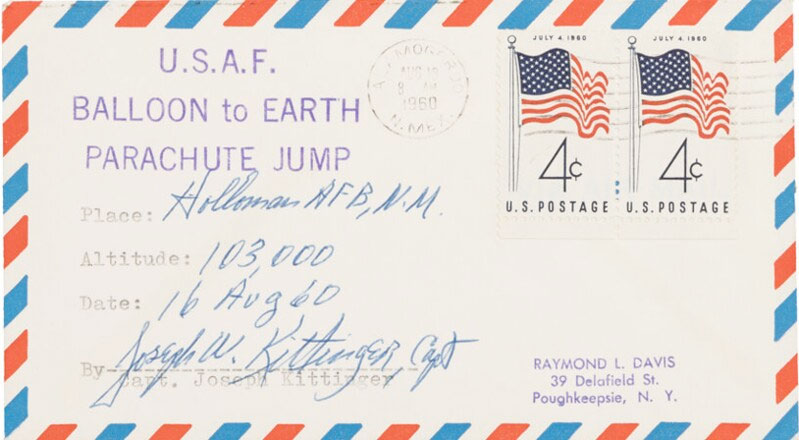 U.S.A.F.
BALLOON to EARTH
PARACHUTE JUMP
ALAMOGORDO
AUG 18
8 AM
1960
N. MEX.
JULY 4, 1960
4¢
U.S. POSTAGE
JULY 4, 1960
4¢
U.S. POSTAGE
Place: Holloman AFB, N.M.
Altitude: 103,000
Date: 16 Aug 60
By Joseph W. Kittinger, Capt
Capt. Joseph Kittinger
RAYMOND L. DAVIS
39 Delafield St.
Poughkeepsie, N. Y.